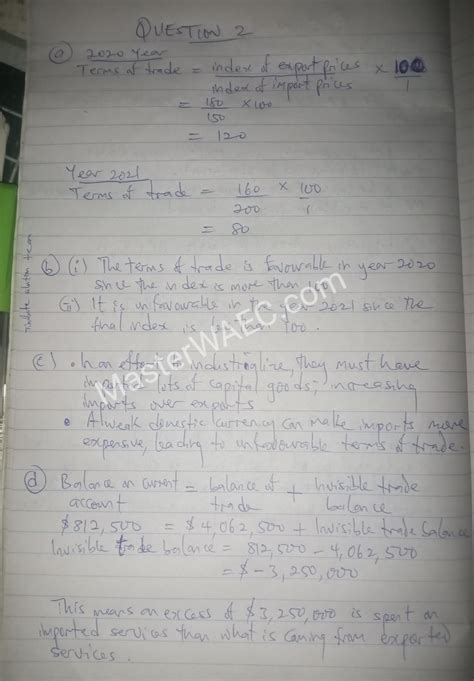 QUESTION 2
(a) 2020 Year
Terms of trade = index of export prices × 100
index of import prices 1
= 180 × 100
150
= 120
Year 2021
Terms of trade = 160 × 100
200 1
= 80
(b) (i) The terms of trade is favourable in year 2020
since the index is more than 100.
(ii) It is unfavourable in the year 2021 since the
final index is less than 100.
(c) • In an effort to industrialize, they must have
imported lots of capital goods; increasing
imports over exports
• A weak domestic currency can make imports more
expensive, leading to unfavourable terms of trade.
(d) Balance on current = balance of + Invisible trade
account trade balance
$812,500 = $4,062,500 + Invisible trade balance
Invisible trade balance = 812,500 - 4,062,500
= $-3,250,000
This means an excess of $3,250,000 is spent on
imported services than what is coming from exported
services.
MasterWAEC.com